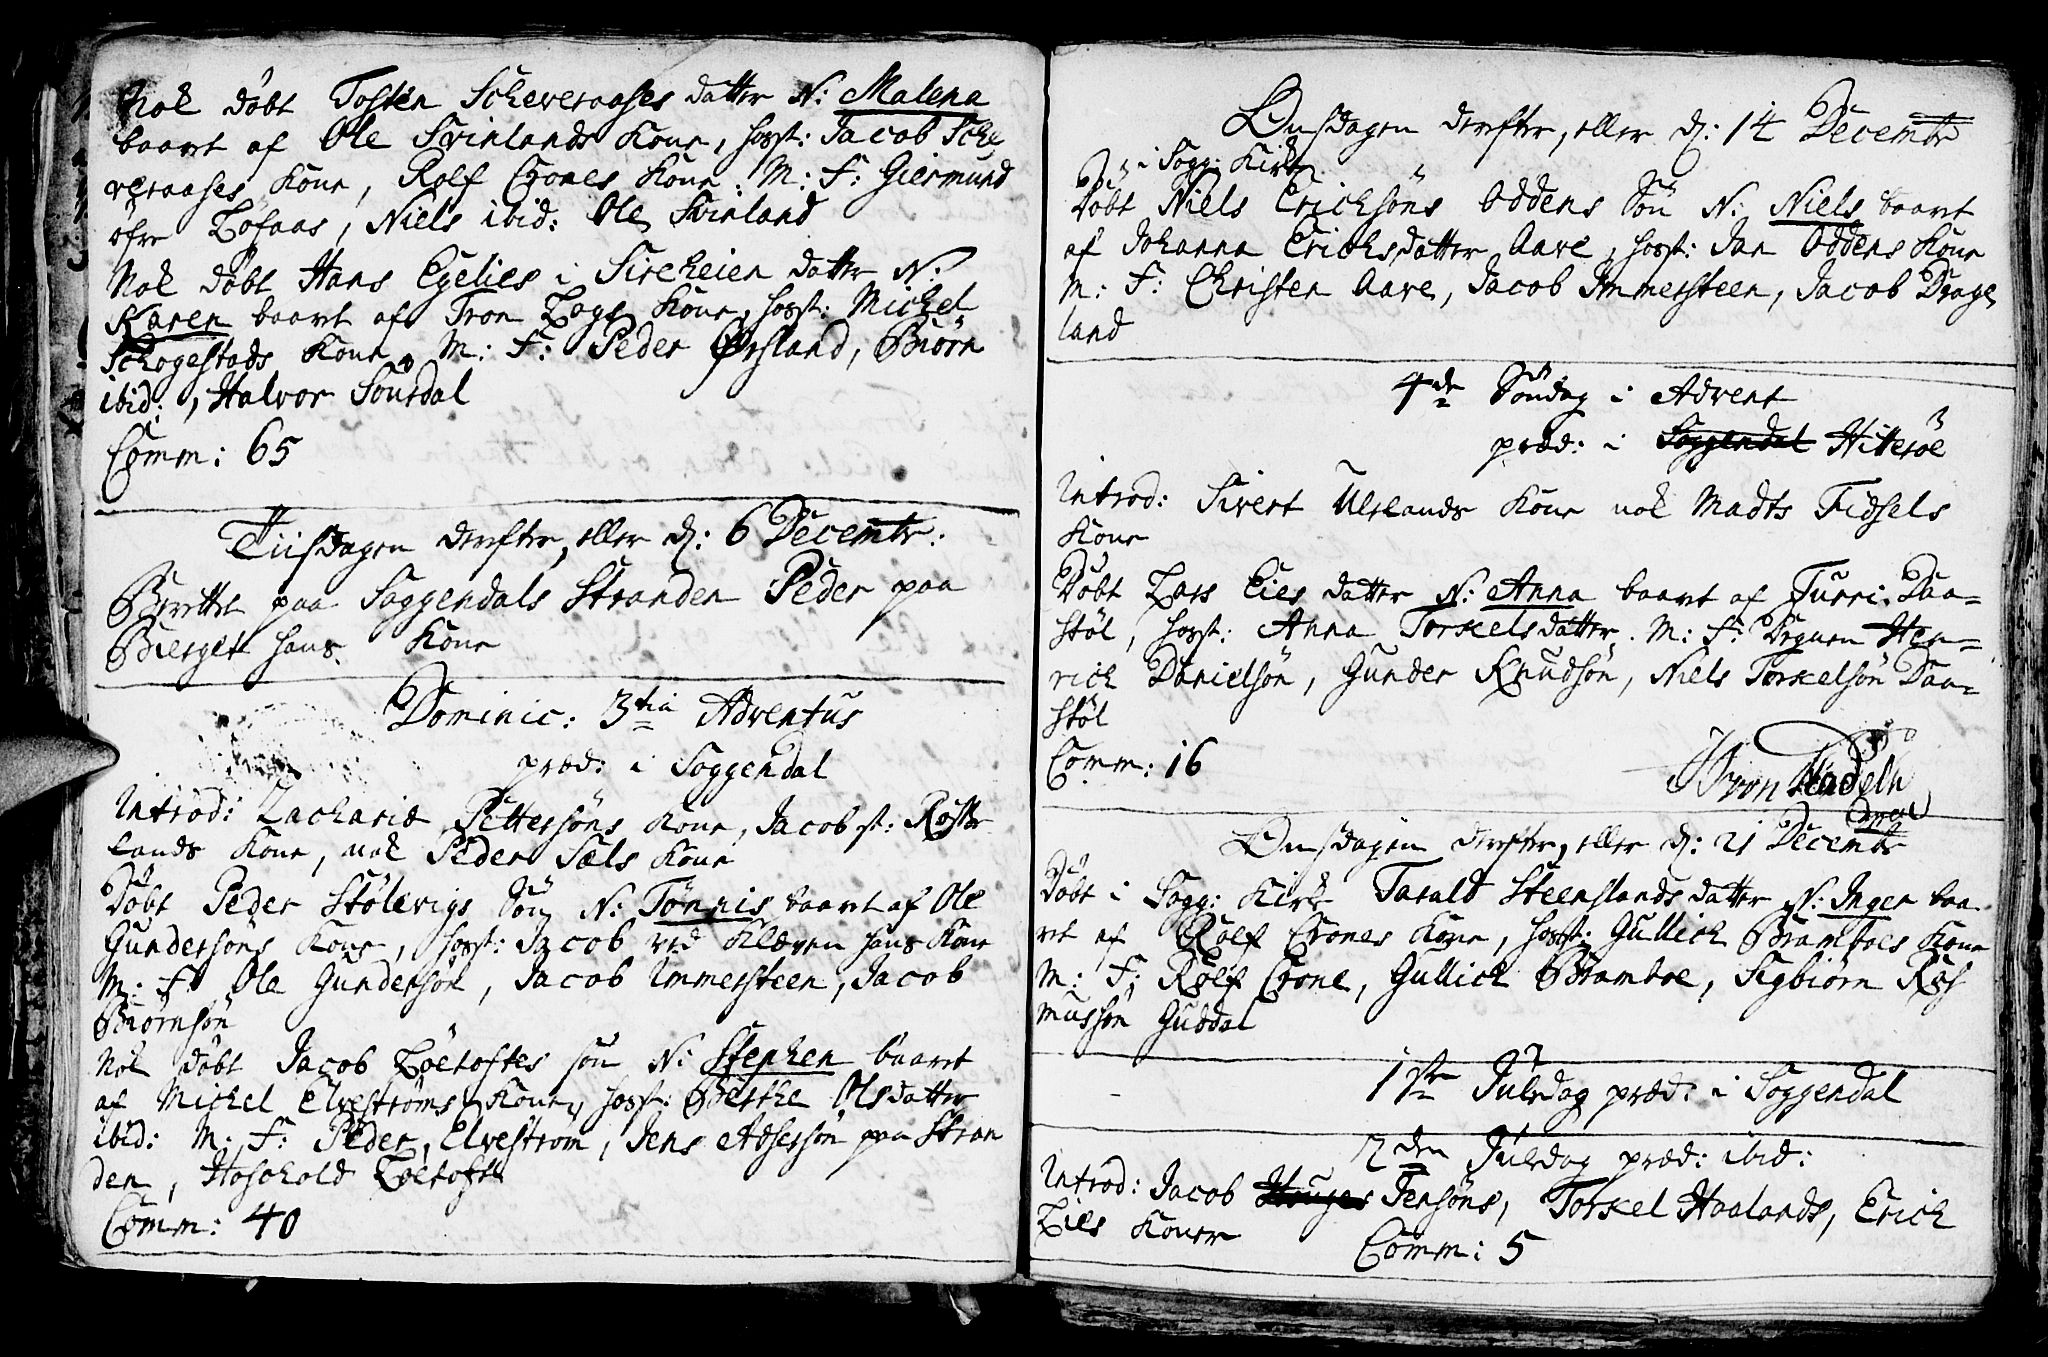 Nok døbt Tosten Scheveraases datter N: Malena
baaret af Ole Svinlands Kone, hosst: Jacob Sche
veraases Kone, Rolf Crones Kone. M: F: Giermund
øfre Løfaas, Niels ibid: Ole Svinland
Nok døbt Hans Egelies i Sireheien datter N:
Karen baaret af Tron Lags Kone, hosst: Michel
Schogestads Kone. M: F: Peder Ørsland, Biørn
ibid:, Halvor Sourdal
Comm: 65
Tiisdagen derefter, eller d: 6 Decembr:
Berettet paa Soggendals Stranden Peder paa
Bierget hans Kone
Dominic: 3tia Adventus
præd: i Soggendal
Introd: Zachariæ Pettersøns Kone, Jacob st: Røste
lands Kone, nok Peder Sæls Kone
Døbt Peder Stølevigs Søn N: Tønnis baaret af Ole
Gundersøns Kone, hosst: Jacob ved Kleven hans Kone
M: F: Ole Gundersøn, Jacob Immersteen, Jacob
Biørnsøn
Nok døbt Jacob Løetoftes søn N: Stephen baaret
af Michel Elvestrøms Kone, hosst: Berthe Olsdatter
ibid: M: F: Peder Elvestrøm, Jens Adsersøn paa Stran
den, Hoskold Løetofte
Comm: 40
Onsdagen derefter, eller d: 14 Decembr
i Sogg: Kirke
Døbt Niels Erichsøns Oddens Søn N: Niels baaret
af Johanna Erichsdatter Aave, hosst: Jan Oddens Kone
M: F: Christen Aave, Jacob Immersteen, Jacob Drage
land
4de Søndag i Advent
præd: i Soggendal Hitterøe
Introd: Sivert Ulslands Kone nok Madts Fidsels
Kone
Døbt Lars Eies datter N: Anna baaret af Turri Daa-
støl, hosst: Anna Torkelsdatter. M: F: Degnen Hen-
rich Danielsøn, Gunder Knudsøn, Niels Torkelsøn Daa-
støl
Comm: 16
von Hadeln
Onsdagen derefter, eller d: 21 Decembr
Døbt i Sogg: Kirke Tarald Steenslands datter N: Inger baa
ret af Rolf Crones Kone, hosst: Gullich Bramboes Kone
M: F: Rolf Crone, Gullich Bramboe, Sigbiørn Ras
mussøn Guddal
1ste Juledag præd: i Soggendal
2den Juledag præd: ibid:
Introd: Jacob Jensøns, Torkel Haalands, Erich
Lies Koner
Comm: 5